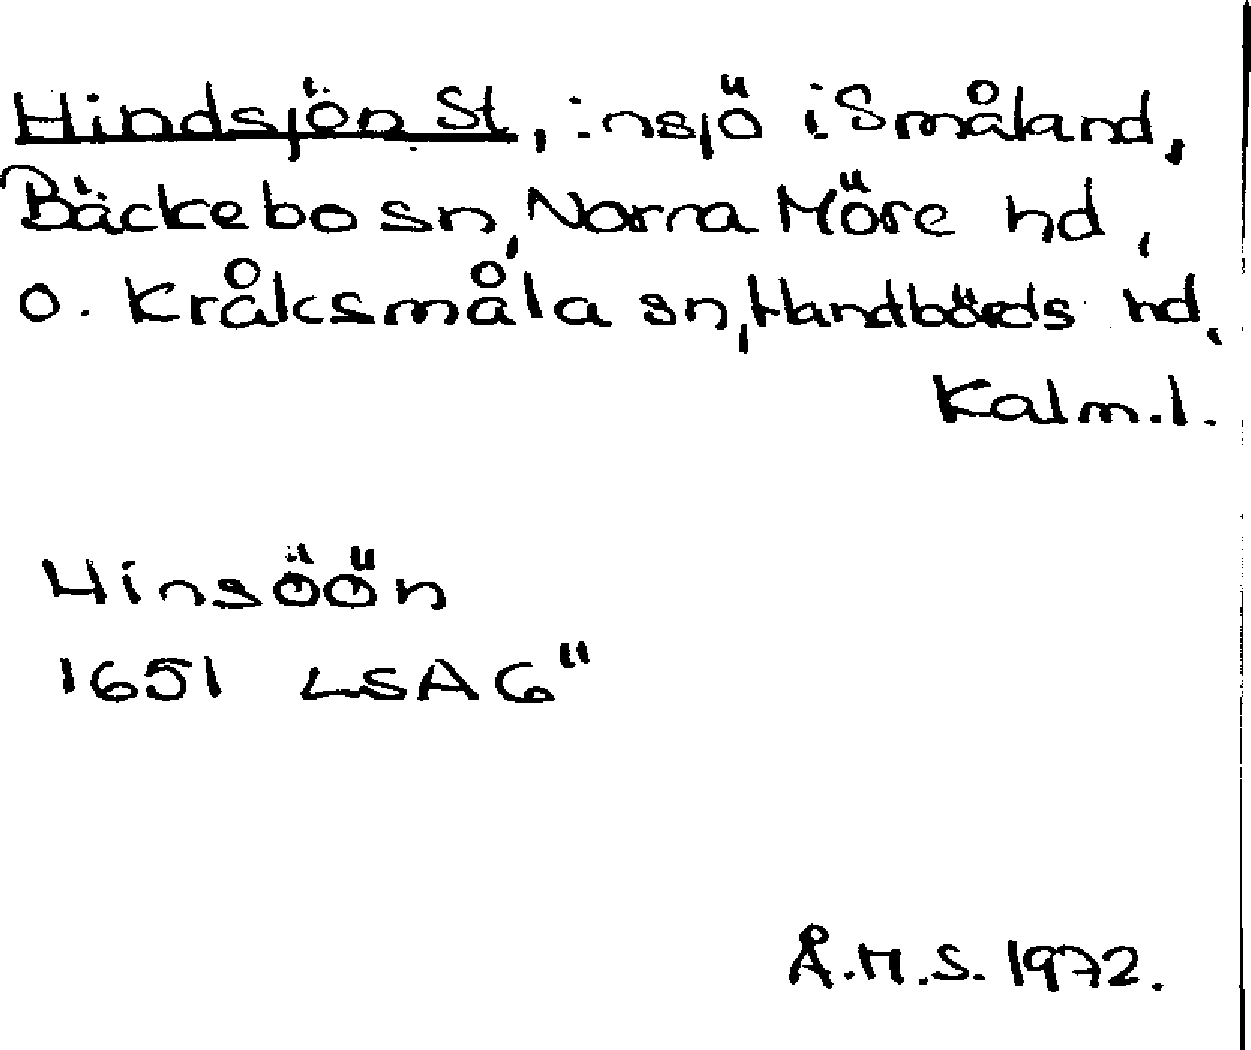 Hindsjön St, insjö i Småland,
Bäckebo sn, Norra Möre hd,
o. Kråksmåla sn, Handbörds hd,
Kalm.l.
Hinsöön
1651 LSA G"
Å.M.S. 1972.